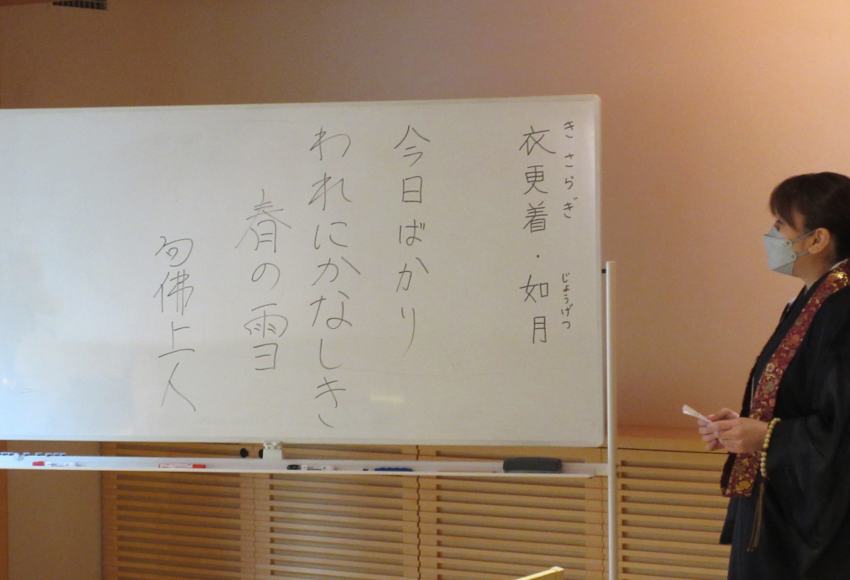 きさらぎ じょうげつ
衣更着・如月
今日ばかり
われにかなしき
春の雪
句佛上人